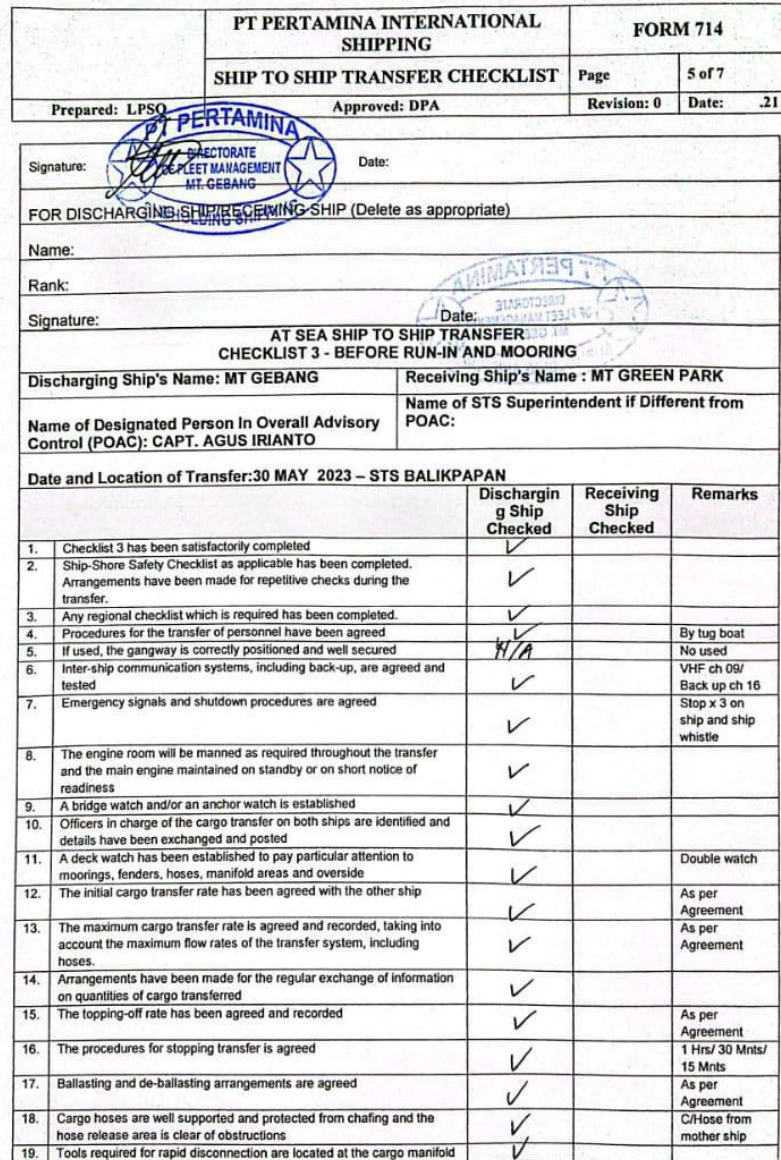 PT PERTAMINA INTERNATIONAL
SHIPPING
FORM 714
SHIP TO SHIP TRANSFER CHECKLIST
Page
5 of 7
Prepared: LPSQ
Approved: DPA
Revision: 0
Date:
.21
PT PERTAMINA
DIRECTORATE
OF FLEET MANAGEMENT
MT. GEBANG
Signature:
Date:
FOR DISCHARGING SHIP/RECEIVING SHIP (Delete as appropriate)
Name:
Rank:
PT PERTAMINA
DIRECTORATE
OF FLEET MANAGEMENT
Signature:
Date:
AT SEA SHIP TO SHIP TRANSFER
CHECKLIST 3 - BEFORE RUN-IN AND MOORING
Discharging Ship's Name: MT GEBANG
Receiving Ship's Name : MT GREEN PARK
Name of Designated Person In Overall Advisory
Control (POAC): CAPT. AGUS IRIANTO
Name of STS Superintendent if Different from
POAC:
Date and Location of Transfer:30 MAY 2023 – STS BALIKPAPAN
Dischargin
g Ship
Checked
Receiving
Ship
Checked
Remarks
1. Checklist 3 has been satisfactorily completed ✓
2. Ship-Shore Safety Checklist as applicable has been completed.
Arrangements have been made for repetitive checks during the
transfer. ✓
3. Any regional checklist which is required has been completed. ✓
4. Procedures for the transfer of personnel have been agreed ✓ By tug boat
5. If used, the gangway is correctly positioned and well secured N/A No used
6. Inter-ship communication systems, including back-up, are agreed and
tested ✓
VHF ch 09/
Back up ch 16
7. Emergency signals and shutdown procedures are agreed ✓
Stop x 3 on
ship and ship
whistle
8. The engine room will be manned as required throughout the transfer
and the main engine maintained on standby or on short notice of
readiness ✓
9. A bridge watch and/or an anchor watch is established ✓
10. Officers in charge of the cargo transfer on both ships are identified and
details have been exchanged and posted ✓
11. A deck watch has been established to pay particular attention to
moorings, fenders, hoses, manifold areas and overside ✓
Double watch
12. The initial cargo transfer rate has been agreed with the other ship ✓
As per
Agreement
13. The maximum cargo transfer rate is agreed and recorded, taking into
account the maximum flow rates of the transfer system, including
hoses. ✓
As per
Agreement
14. Arrangements have been made for the regular exchange of information
on quantities of cargo transferred ✓
15. The topping-off rate has been agreed and recorded ✓
As per
Agreement
16. The procedures for stopping transfer is agreed ✓
1 Hrs/ 30 Mnts/
15 Mnts
17. Ballasting and de-ballasting arrangements are agreed ✓
As per
Agreement
18. Cargo hoses are well supported and protected from chafing and the
hose release area is clear of obstructions ✓
C/Hose from
mother ship
19. Tools required for rapid disconnection are located at the cargo manifold ✓